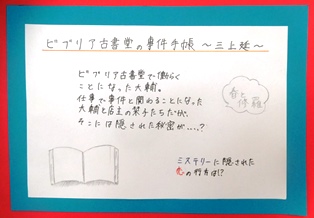 ビブリア古書堂の事件手帖 ～三上延～
ビブリア古書堂で働らく
ことになった大輔。
仕事で事件と関わることになった
大輔と店主の栞子たちだが、
そこには隠された秘密が....?
春と
修羅
ミステリーに隠された
恋の行方は!?